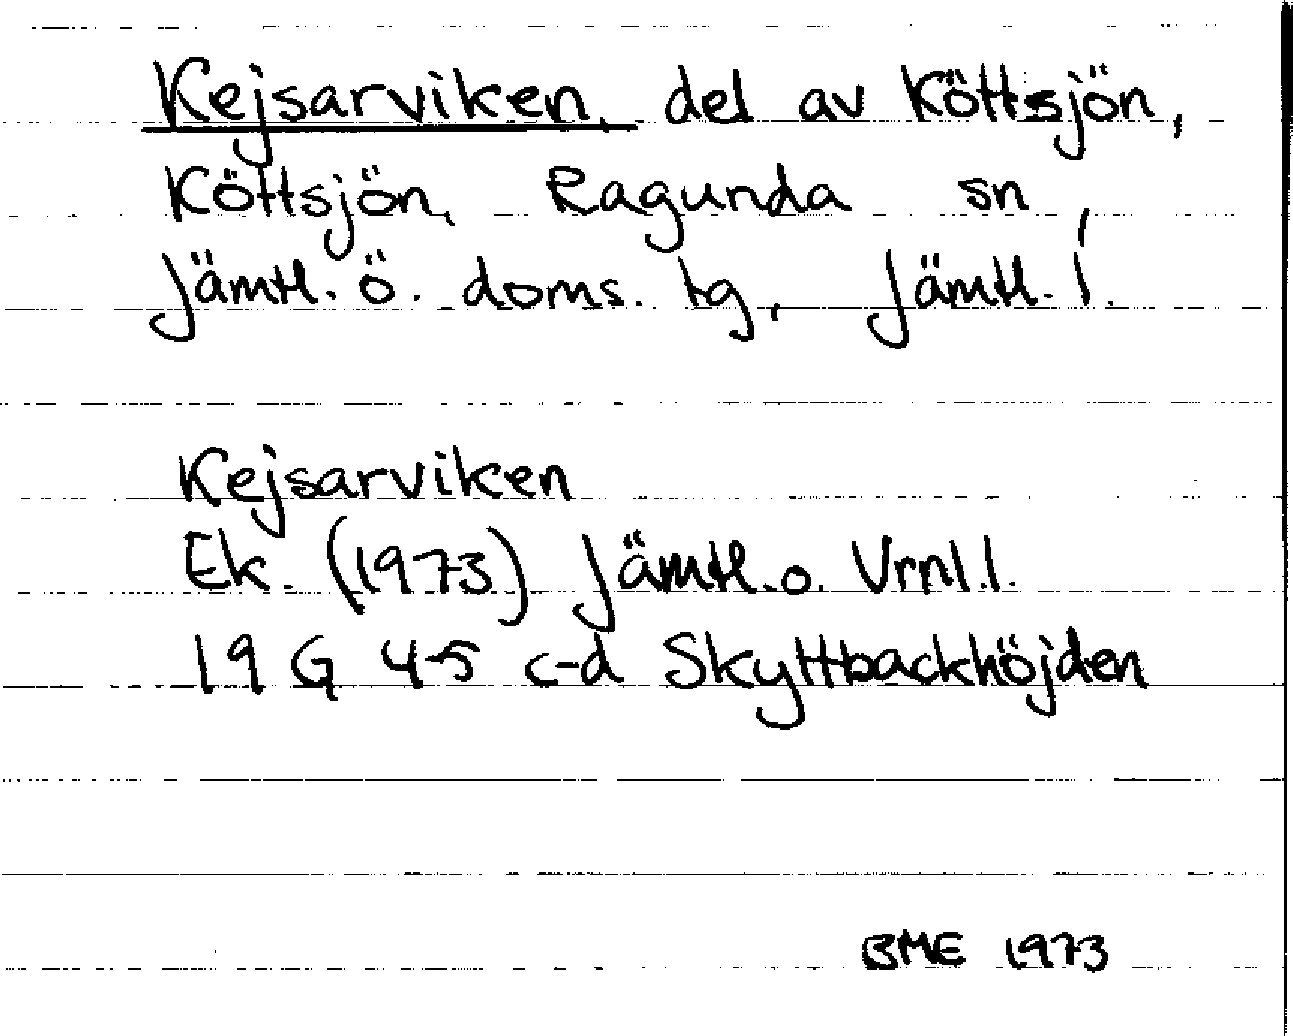 Kejsarviken, del av Köttsjön,
Köttsjön, Ragunda sn,
Jämtl. ö. doms. tg, Jämtl. l.
Kejsarviken
Ek. (1973) Jämtl. o. Vrnl. l.
19 G 4-5 c-d Skyttbackhöjden
BME 1973